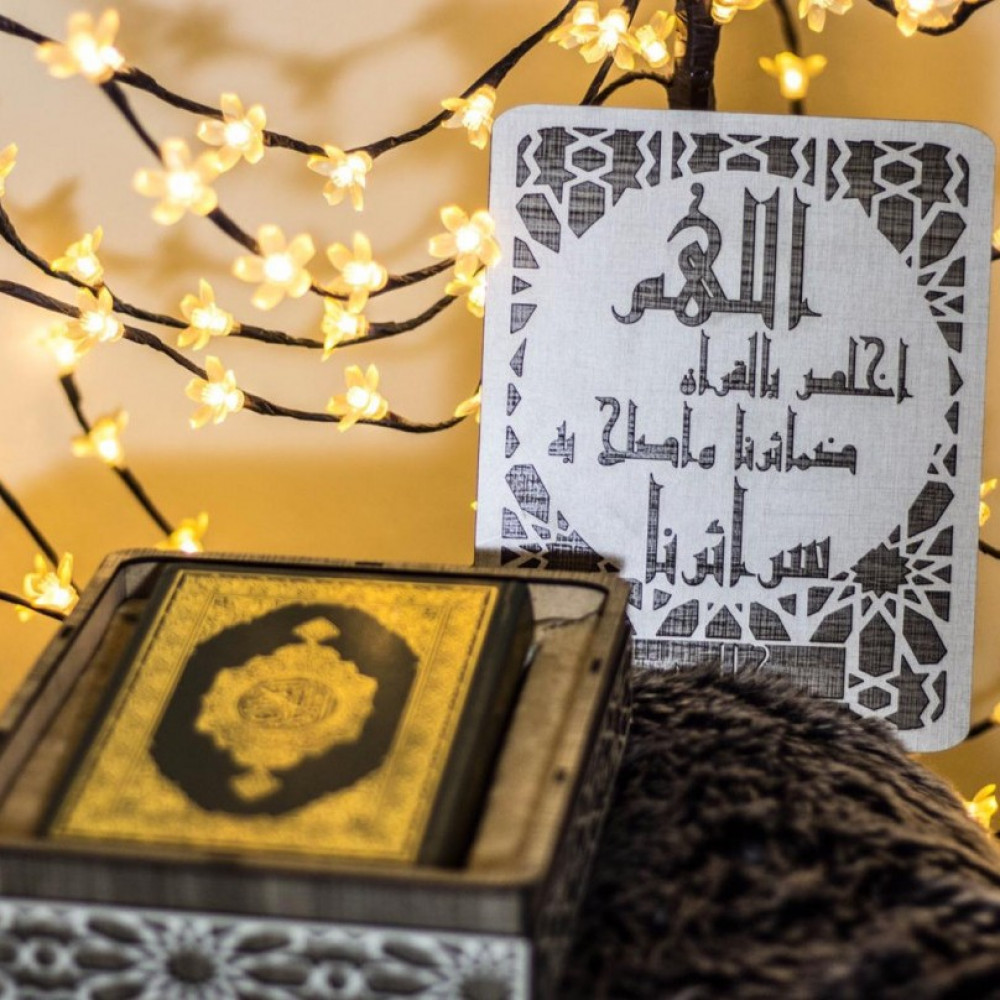 اللهم
اخلص بالقرآن
ضمائرنا واصلح به
سرائرنا